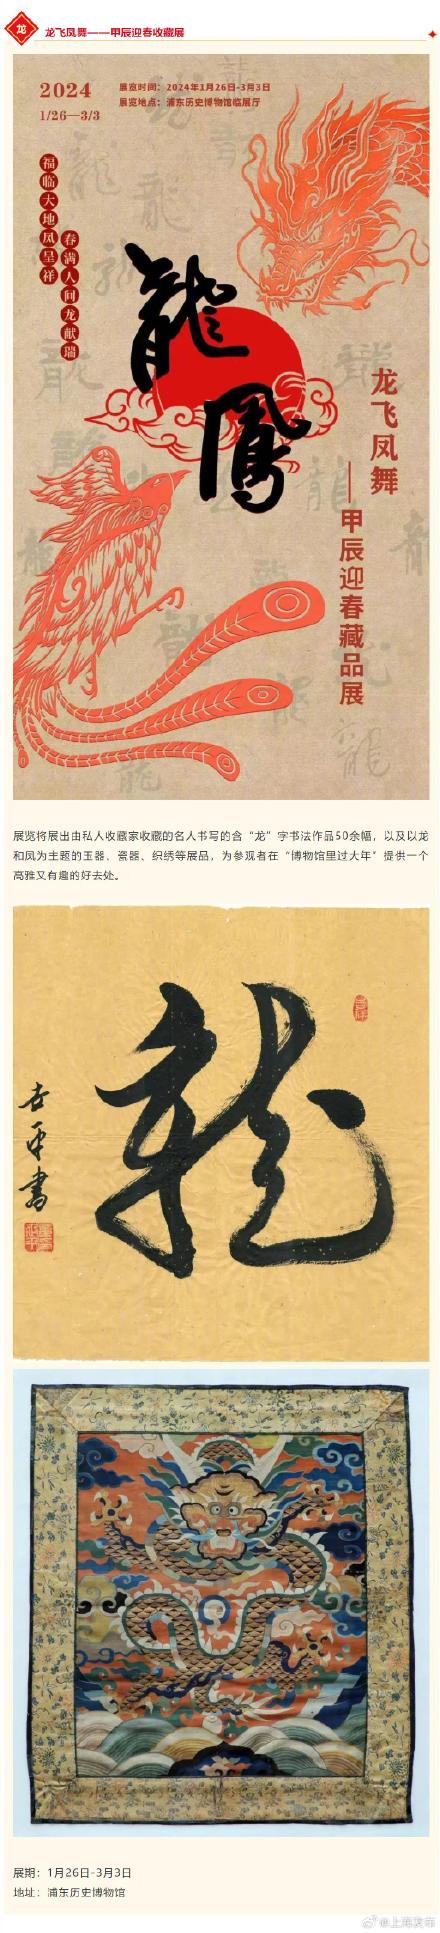 龙
龙飞凤舞——甲辰迎春收藏展
2024
1/26—3/3
展览时间：2024年1月26日-3月3日
展览地点：浦东历史博物馆临展厅
福临大地凤呈祥
春满人间龙献瑞
龍
鳳
龙飞凤舞
——甲辰迎春藏品展
展览将展出由私人收藏家收藏的名人书写的含“龙”字书法作品50余幅，以及以龙
和凤为主题的玉器、瓷器、织绣等展品，为参观者在“博物馆里过大年”提供一个
高雅又有趣的好去处。
龍
展期：1月26日-3月3日
地址：浦东历史博物馆
@上海发布